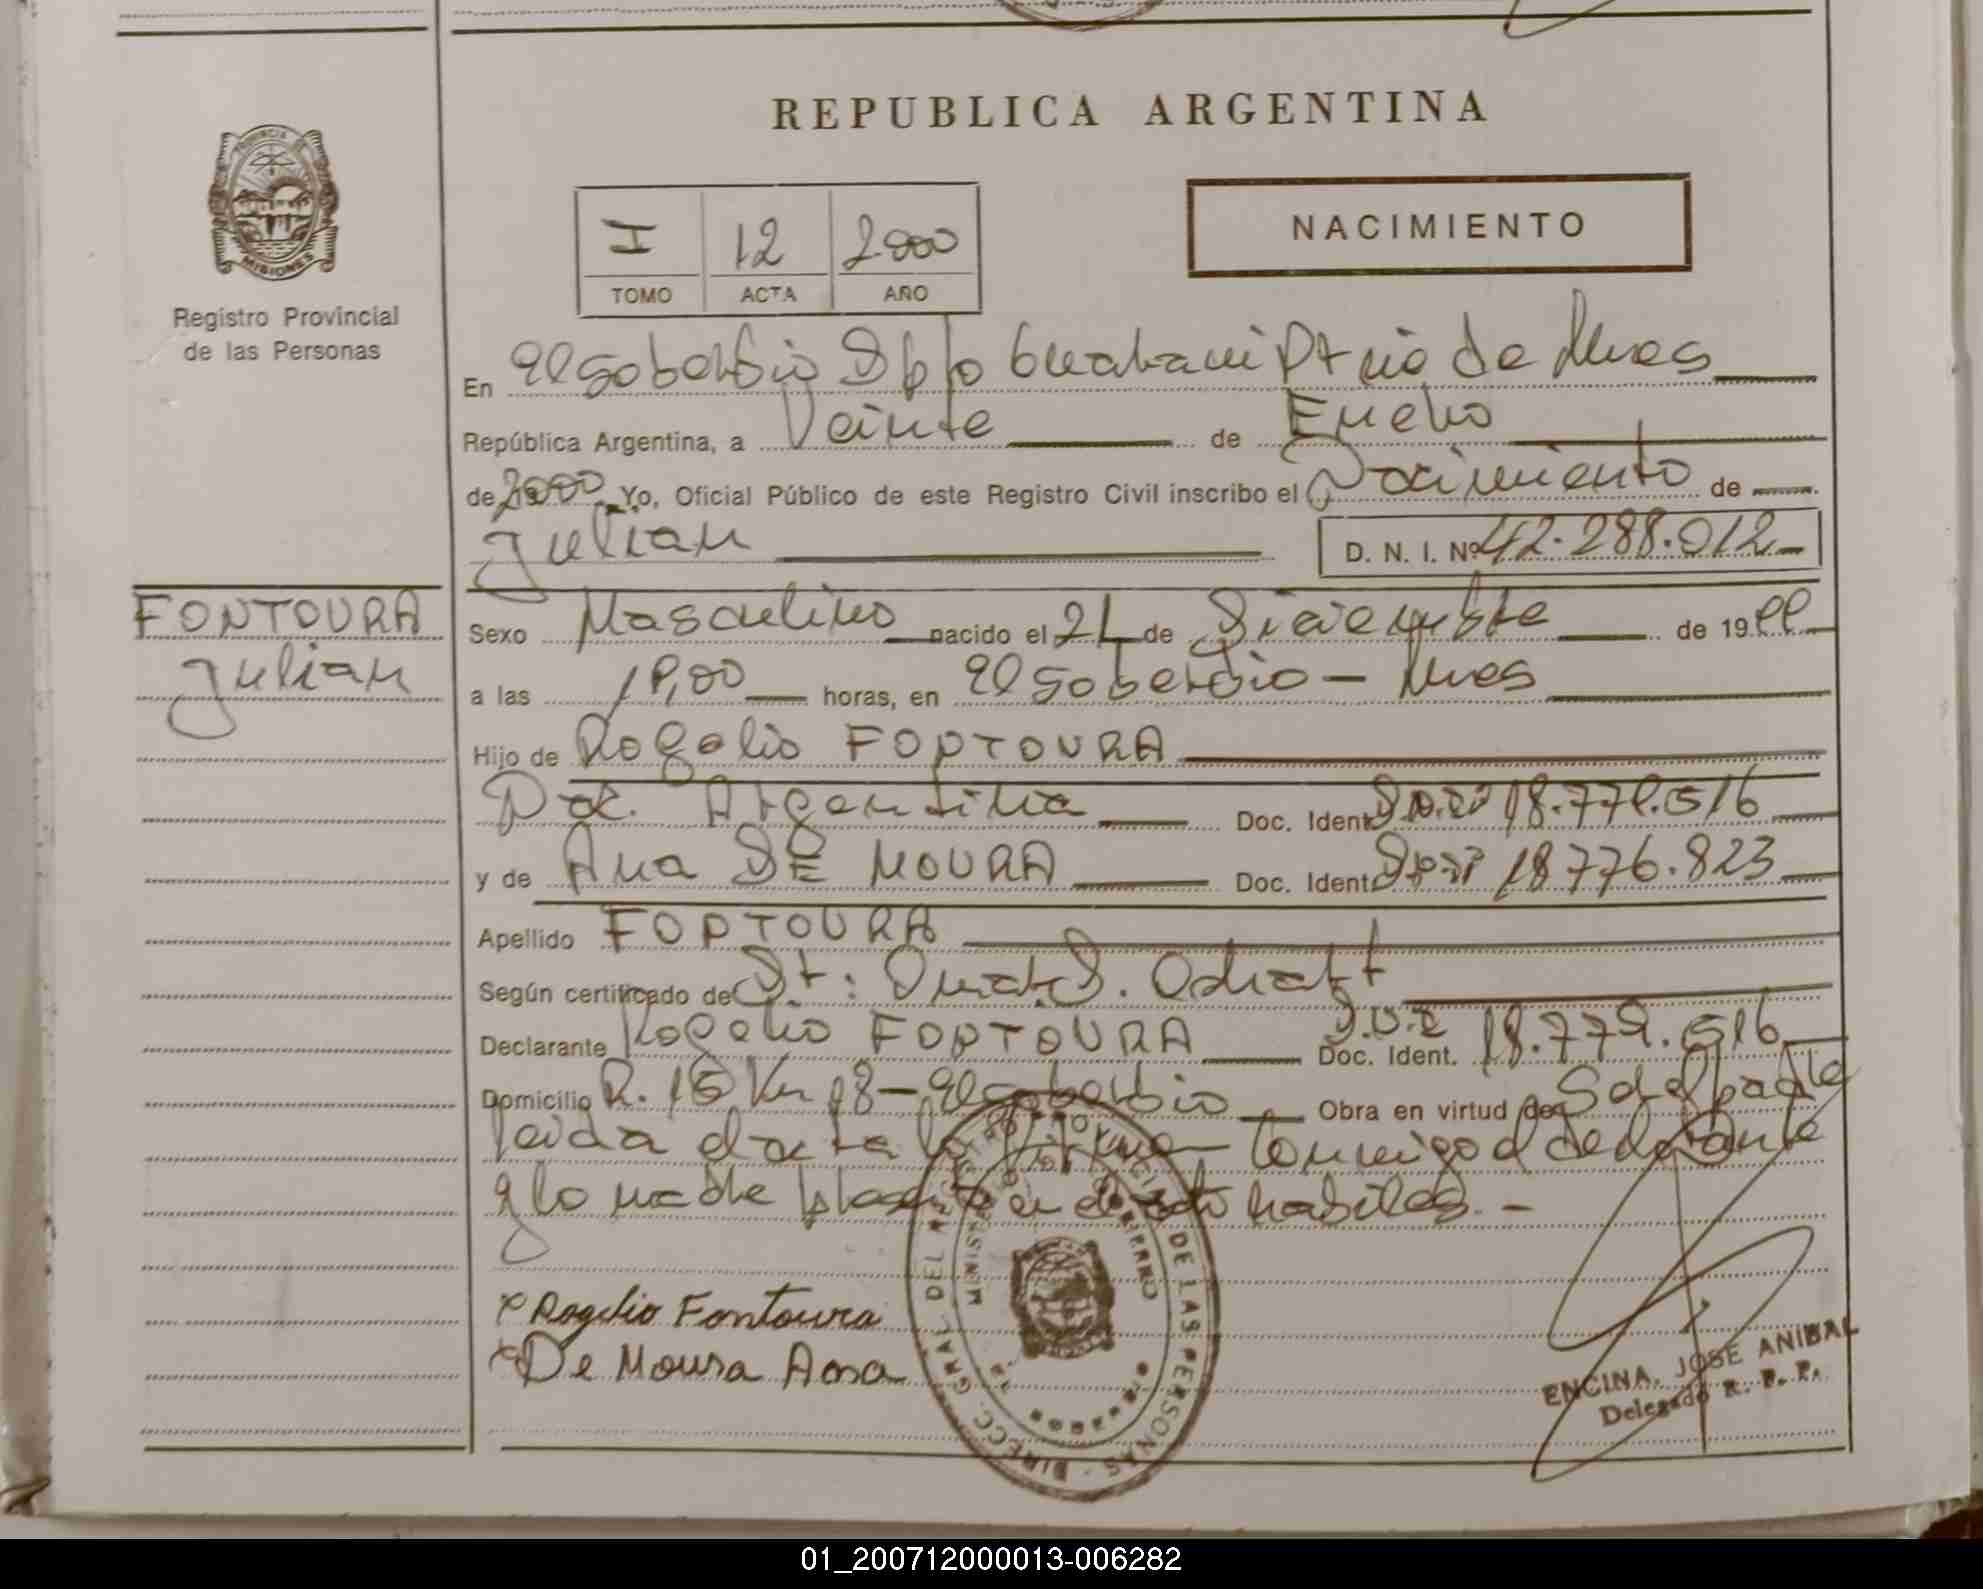 REPUBLICA ARGENTINA
NACIMIENTO
I 12 2.000
TOMO ACTA AÑO
PROVINCIA DE
MISIONES
Registro Provincial
de las Personas
En El Soberbio Dpto Guarani Pt cia de Mnes
República Argentina, a Veinte de Enero
de 2000 Yo, Oficial Público de este Registro Civil inscribo el Nacimiento de
Julian D. N. I. Nº 42.288.012
FONTOURA
Julian
Sexo Masculino nacido el 21 de Diciembre de 1999
a las horas, en El Soberbio - Mnes
Hijo de Rogelio FONTOURA
Nac. Argentina Doc. Ident. 18.779.516
y de Ana DE MOURA Doc. Ident. 18.776.823
Apellido FONTOURA
Según certificado de
Declarante Rogelio FONTOURA Doc. Ident. 18.779.516
Domicilio R. 15 Km 18 - El Soberbio Obra en virtud de Sdelpadre
leida acta la firma conmigo el declarante
y la madre habiles. -
Rogelio Fontoura
De Moura Ana
DIRECC. GRAL. DEL DE LAS PERSONAS
ENCINA, JOSE ANIBAL
Delegado R. P. P.
01_200712000013-006282